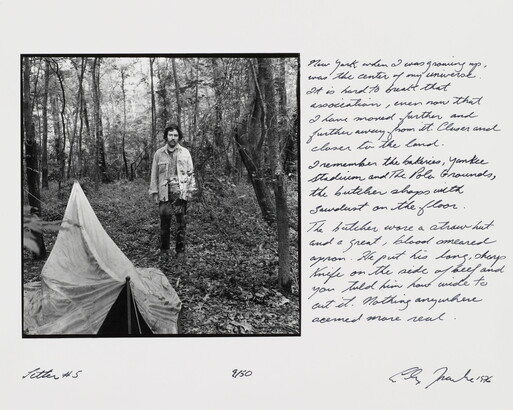 New York when I was growing up,
was the center of my universe.
It is hard to break that
association, even now that
I have moved further and
further away from it. Closer and
closer to the land.
I remember the bakeries, Yankee
Stadium and The Polo Grounds,
the butcher shops with
sawdust on the floor.
The butcher wore a straw hat
and a great, blood smeared
apron. He put his long, sharp
knife on the side of beef and
you told him how wide to
cut it. Nothing anywhere
seemed more real.
Letter #5
9/50
1976